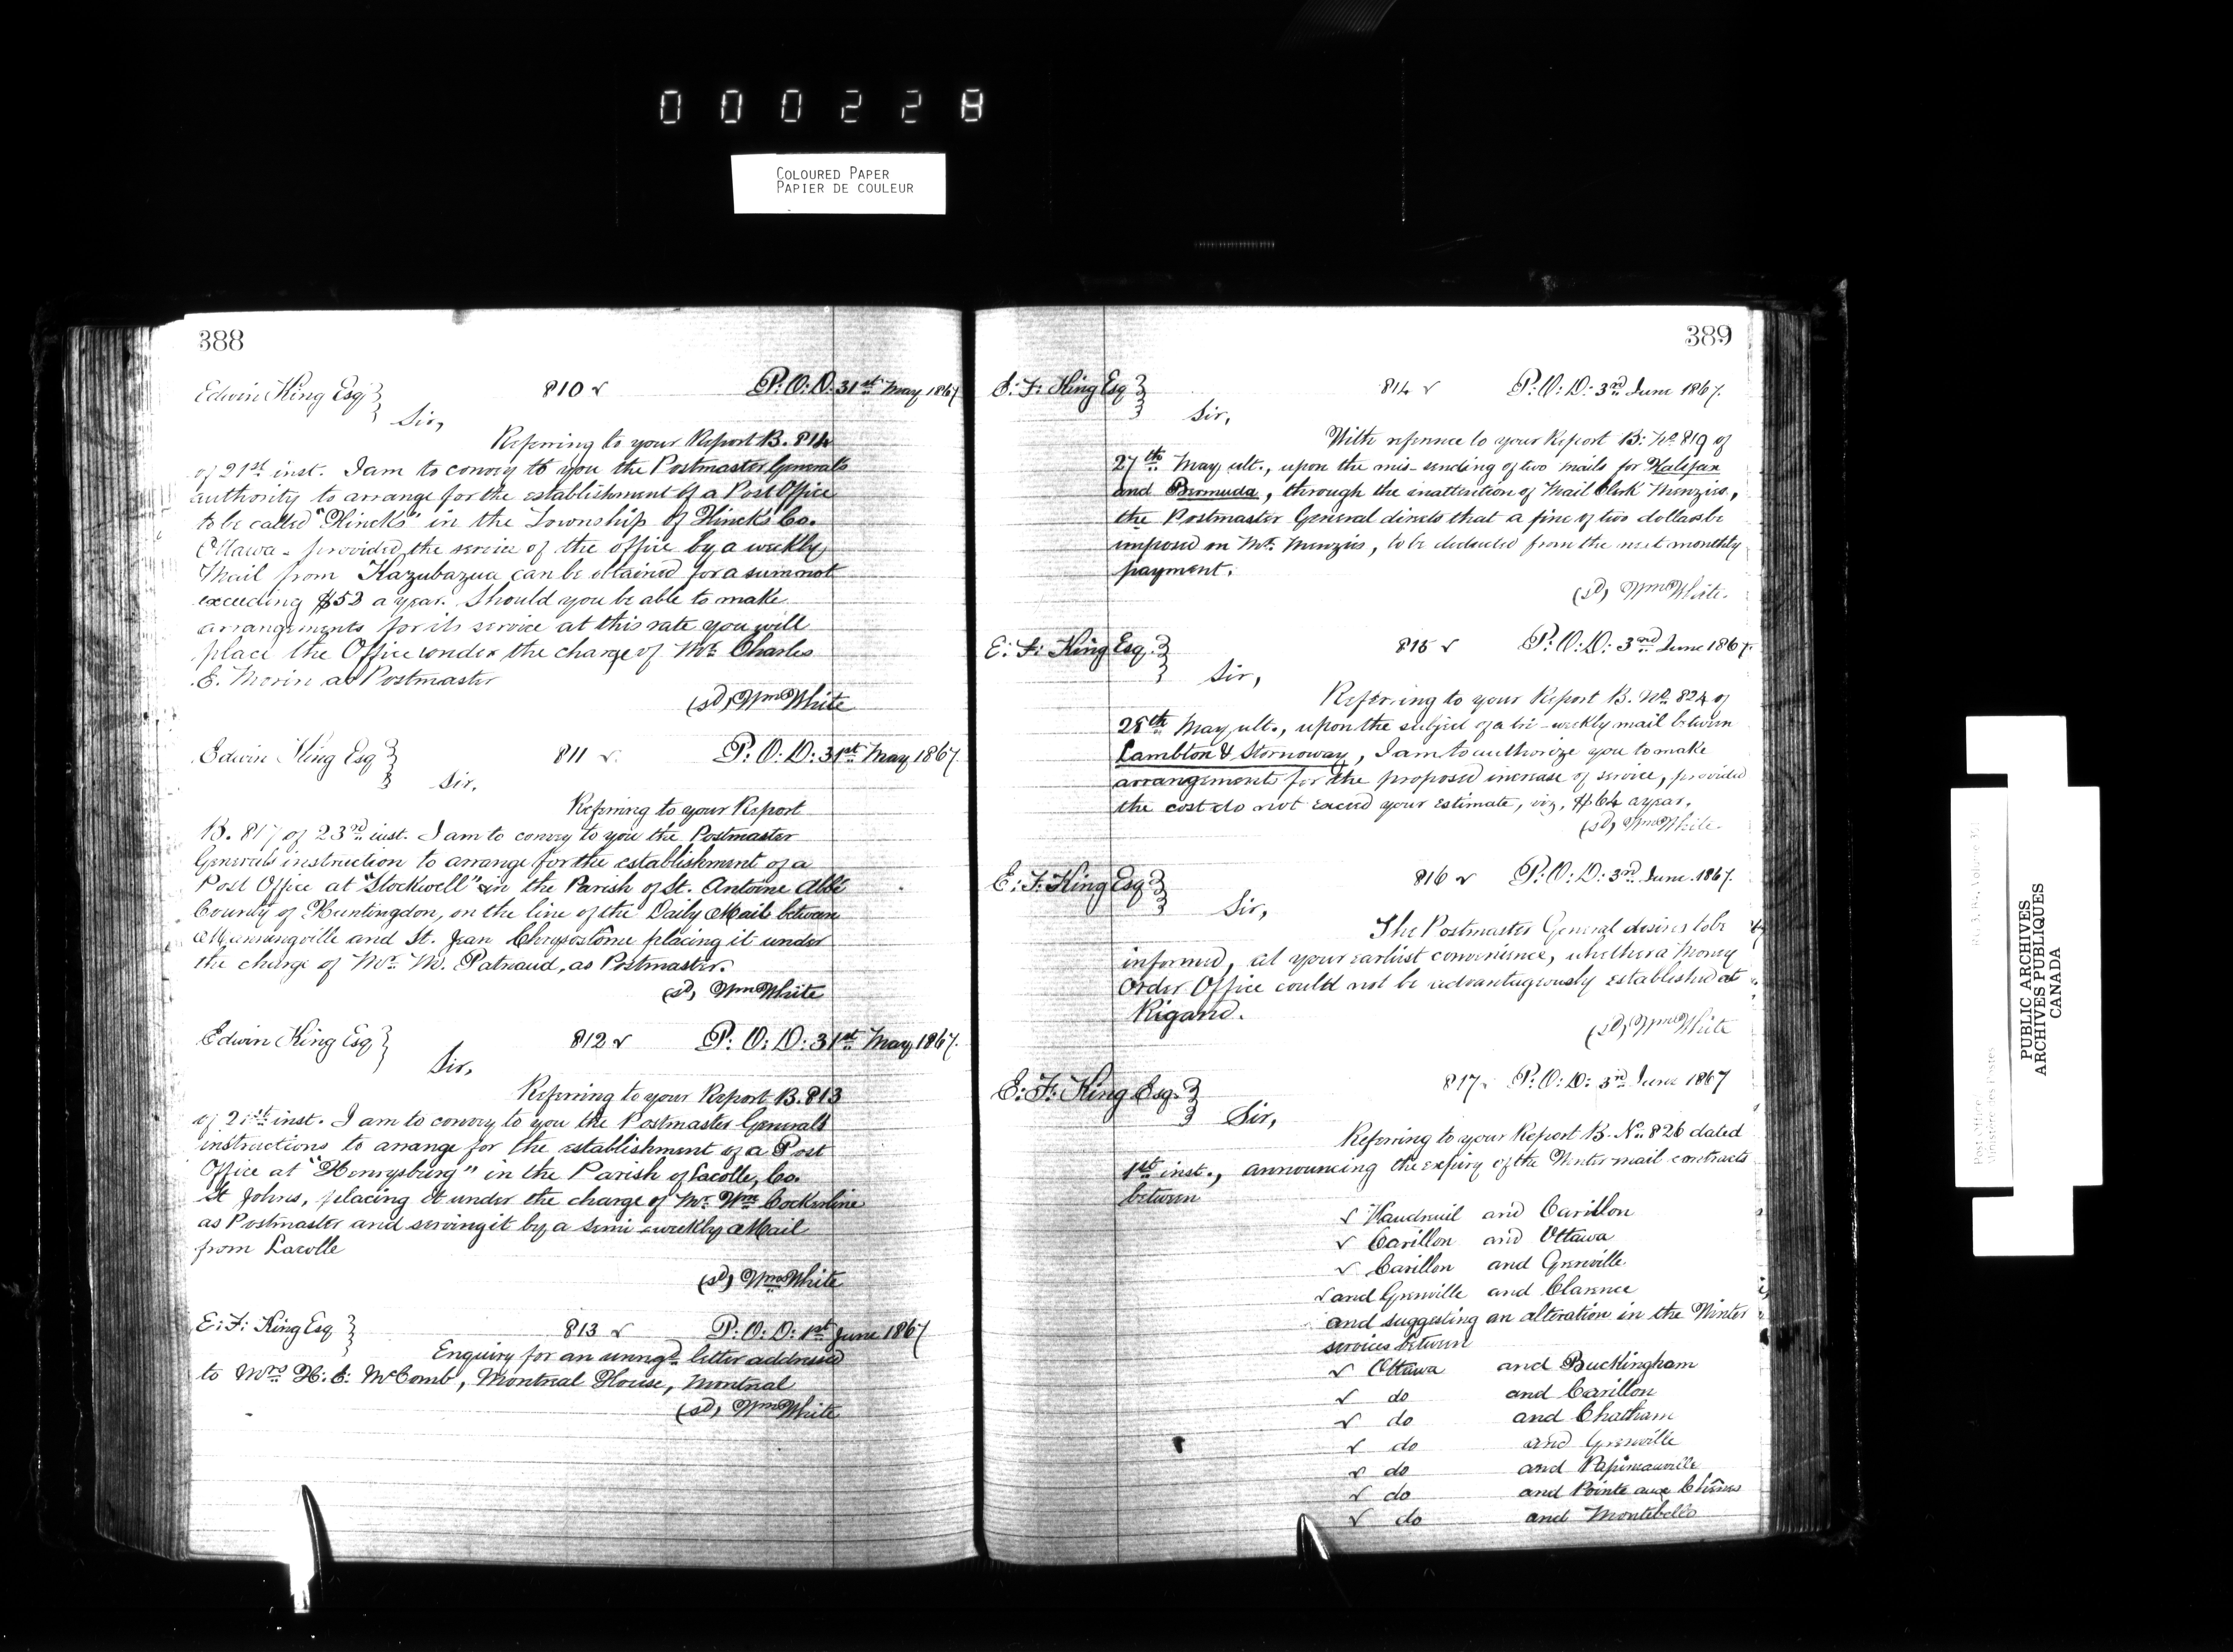 000228
COLOURED PAPER
PAPIER DE COULEUR
388
Edwin King Esq
810 P.O.D. 31st May 1867
Sir,
Referring to your Report B. 814
of 21st inst. I am to convey to you the Postmaster Generals
authority to arrange for the establishment of a Post Office
to be called "Hincks" in the Township of Hincks Co.
Ottawa - provided the service of the office by a weekly
Mail from Kazubazua can be obtained for a sum not
exceeding $52 a year. Should you be able to make
arrangements for its service at this rate you will
place the Office under the charge of Mr. Charles
E. Morin as Postmaster
(sd) Wm White
Edwin King Esq
811 P.O.D. 31st May 1867
Sir,
Referring to your Report
B. 817 of 23rd inst. I am to convey to you the Postmaster
Generals instruction to arrange for the establishment of a
Post Office at "Stockwell" in the Parish of St. Antoine Abbé
County of Huntingdon, on the line of the Daily Mail between
Manningville and St. Jean Chrysostôme placing it under
the charge of Mr. M. Patnaud, as Postmaster.
(sd) Wm White
Edwin King Esq
812 P.O.D. 31st May 1867.
Sir,
Referring to your Report B. 813
of inst. I am to convey to you the Postmaster Generals
instructions to arrange for the establishment of a Post
Office at "Henrysburg" in the Parish of Lacolle, Co.
St Johns, placing it under the charge of Mr. Wm Cockerline
as Postmaster and serving it by a semi-weekly Mail
from Lacolle
(sd) Wm White
E: F: King Esq
813 P.O.D: 1st June 1867
Enquiry for an unregd. letter addressed
to Mrs H. C. McComb, Montreal House, Montreal
(sd) Wm White
389
E: F: King Esq
814 P.O.D. 3rd June 1867.
Sir,
With reference to your Report B: No 819 of
27th May ult., upon the mis-sending of two mails for Halifax
and Bermuda, through the inattention of Mail Clerk Menzies,
the Postmaster General directs that a fine of two dollars be
imposed on Mr. Menzies, to be deducted from the next monthly
payment.
(sd) Wm White.
E: F: King Esq.
815 P.O.D: 3rd June 1867.
Sir,
Referring to your Report B. No. 824 of
28th May ult., upon the subject of a tri-weekly mail between
Lambton & Stornoway, I am to authorize you to make
arrangements for the proposed increase of service, provided
the cost do not exceed your estimate, viz, $64 a year.
(sd) Wm White.
E: F: King Esq
816 P.O.D: 3rd June 1867.
Sir,
The Postmaster General desires to be
informed, at your earliest convenience, whether a Money
Order Office could not be advantageously established at
Rigaud.
(sd) Wm White
E: F: King Esq.
817 P.O.D: 3rd June 1867
Sir,
Referring to your Report B. No. 826 dated
1st inst., announcing the expiry of the Winter mail contracts
between
Vaudreuil and Carillon
Carillon and Ottawa
Carillon and Grenville
and Grenville and Clarence
and suggesting an alteration in the Winter
services between
Ottawa and Buckingham
do and Carillon
do and Chatham
do and Grenville
do and Papineauville
do and Pointe aux Chênes
do and Montebello
PUBLIC ARCHIVES
ARCHIVES PUBLIQUES
CANADA